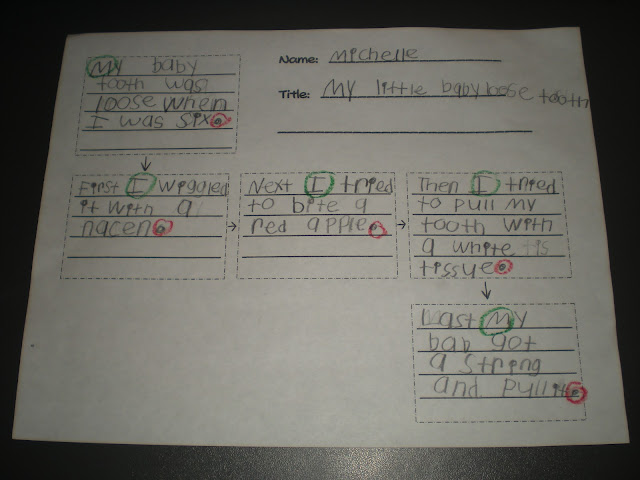 Name: Michelle
Title: My little baby loose tooth
My baby
tooth was
loose when
I was six.
First I wiggled
it with a
nacen.
Next I tried
to bite a
red apple.
Then I tried
to pull my
tooth with
a white tis
tissue.
Last My
bab got
a string
and pull it.